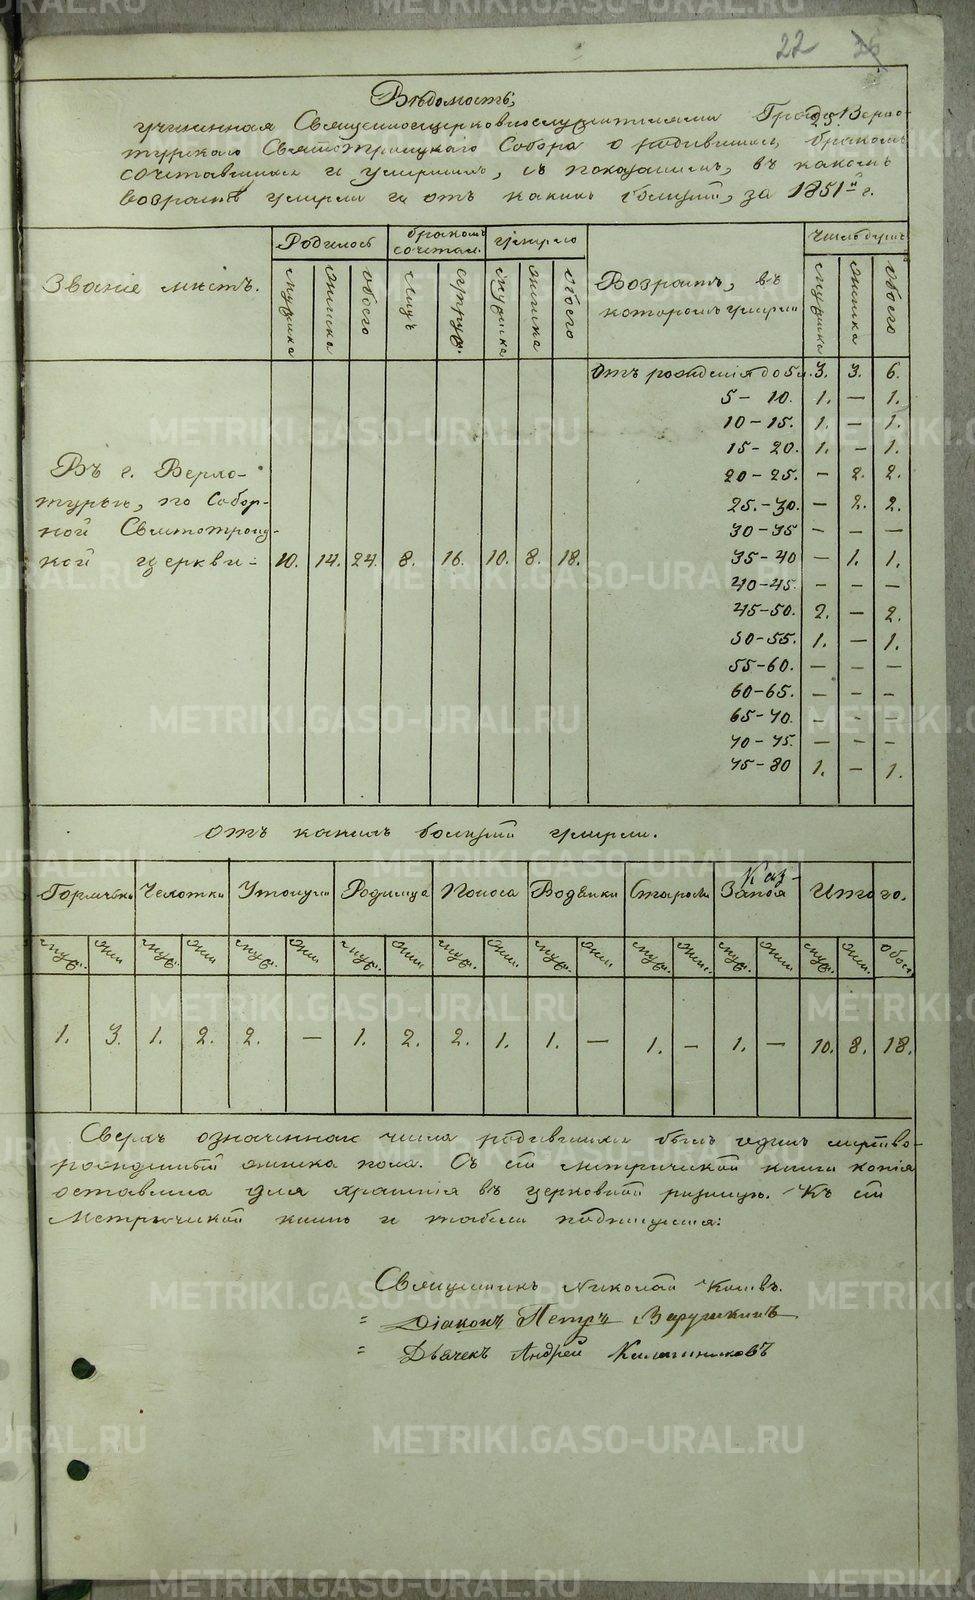 22 26
Вѣдомость,
учиненная Священноцерковнослужителями Градо Верхо-
турскаго Святотроицкаго Собора о родившихся, бракомъ
сочетавшихся и умершихъ, съ показаніемъ, въ какомъ
возрастѣ умерли и отъ какихъ болѣзней, за 1851й г.
Званіе мѣстъ.
Родилось
бракомъ сочетал.
умерло
Возрастъ, въ
которомъ умерли
Число душъ
мужеска женска обоего
лицъ супруж.
мужеска женска обоего
мужеска женска обоего
Отъ рожденія до 5 л. 3. 3. 6.
5 – 10. 1. — 1.
10 – 15. 1. — 1.
15 – 20. 1. — 1.
20 – 25. — 2. 2.
25. – 30. — 2. 2.
30 – 35 — — —
35 – 40 — 1. 1.
40 – 45. — — —
45 – 50. 2. — 2.
50 – 55. 1. — 1.
55 – 60. — — —
60 – 65. — — —
65 – 70. — — —
70 – 75. — — —
75 – 80 1. — 1.
Въ г. Верхо-
турьѣ, по Собор-
ной Святотроиц-
кой церкви 10. 14. 24. 8. 16. 10. 8. 18.
отъ какихъ болѣзней умерли.
Горячки Чахотки Утонули Родимца Поноса Водянки Старости Каз- Запоя Итого.
муж. жен. муж. жен. муж. жен. муж. жен. муж. жен. муж. жен. муж. жен. муж. жен. муж. жен. обоего
1. 3. 1. 2. 2. — 1. 2. 2. 1. 1. — 1. — 1. — 10. 8. 18.
Сверхъ означеннаго числа родившихся былъ одинъ мертво-
рожденный женска пола. Съ сей метрической книги копія
оставлена для храненія въ церковной ризницѣ. Къ сей
Метрической книгѣ и табели подписуемся:
Священникъ Николай
= Діаконъ Петръ
= Дьячекъ Андрей Калашниковъ
METRIKI.GASO-URAL.RU